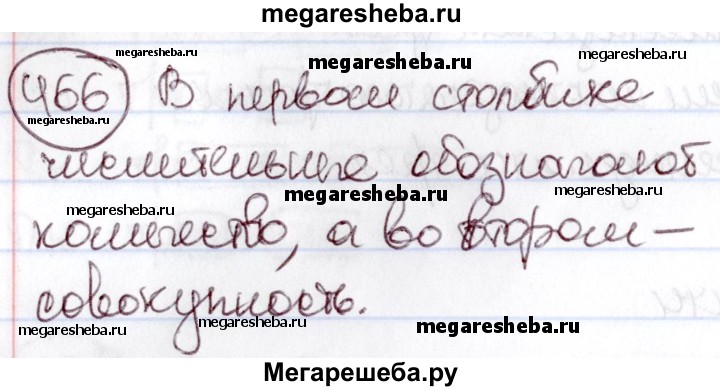 megaresheba.ru
megaresheba.ru megaresheba.ru
466 В первом столбике megaresheba.ru
megaresheba.ru
числительные обозначают
megaresheba.ru megaresheba.ru
megaresheba.ru
количество, а во втором —
совокупность.
megaresheba.ru megaresheba.ru megaresheba.ru
Мегарешеба.ру